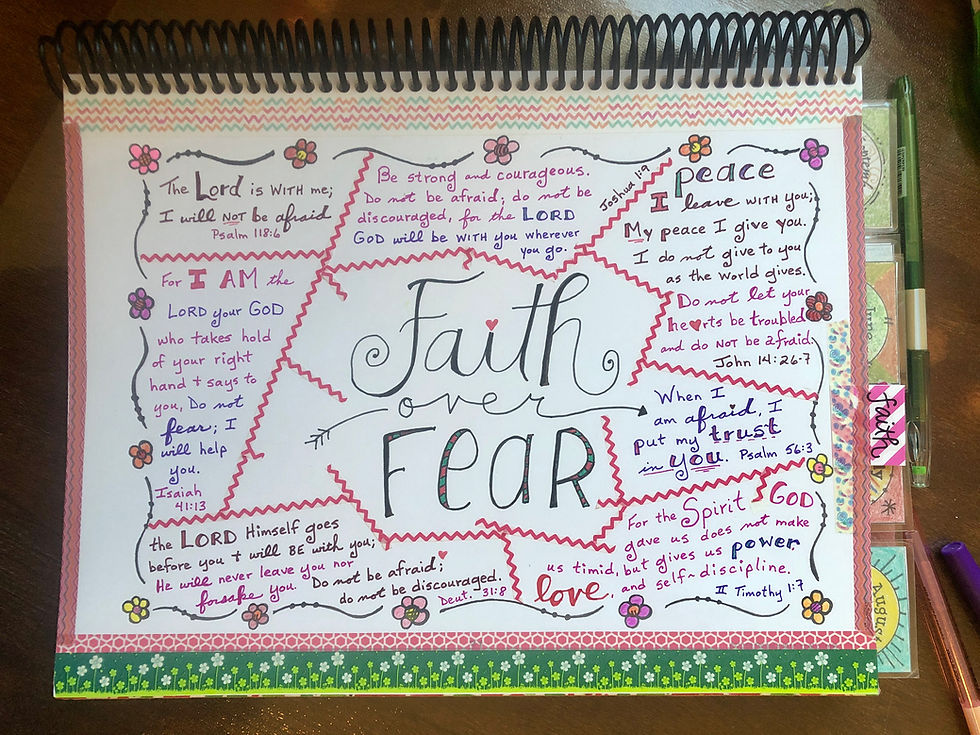 The Lord is WITH me;
I will NOT be afraid
Psalm 118:6
Be strong and courageous.
Do not be afraid; do not be
discouraged, for the LORD
GOD will be WITH you wherever
you go.
Joshua 1:9
peace
I leave WITH YOU;
My peace I give you.
I do not give to you
as the world gives.
Do not let your
hearts be troubled
and do NOT be afraid.
John 14:26-7
For I AM the
LORD your GOD
who takes hold
of your right
hand + says to
you, Do not
fear; I
will help
you.
Isaiah
41:13
Faith
over
FEAR
When I
am afraid, I
put my trust
in you. Psalm 56:3
the LORD Himself goes
before you + will BE with you;
He will never leave you nor
forsake you.
Do not be afraid;
do not be discouraged.
Deut. 31:8
For the Spirit GOD
gave us does not make
us timid, but gives us power,
love, and self-discipline.
II Timothy 1:7
faith
June
August